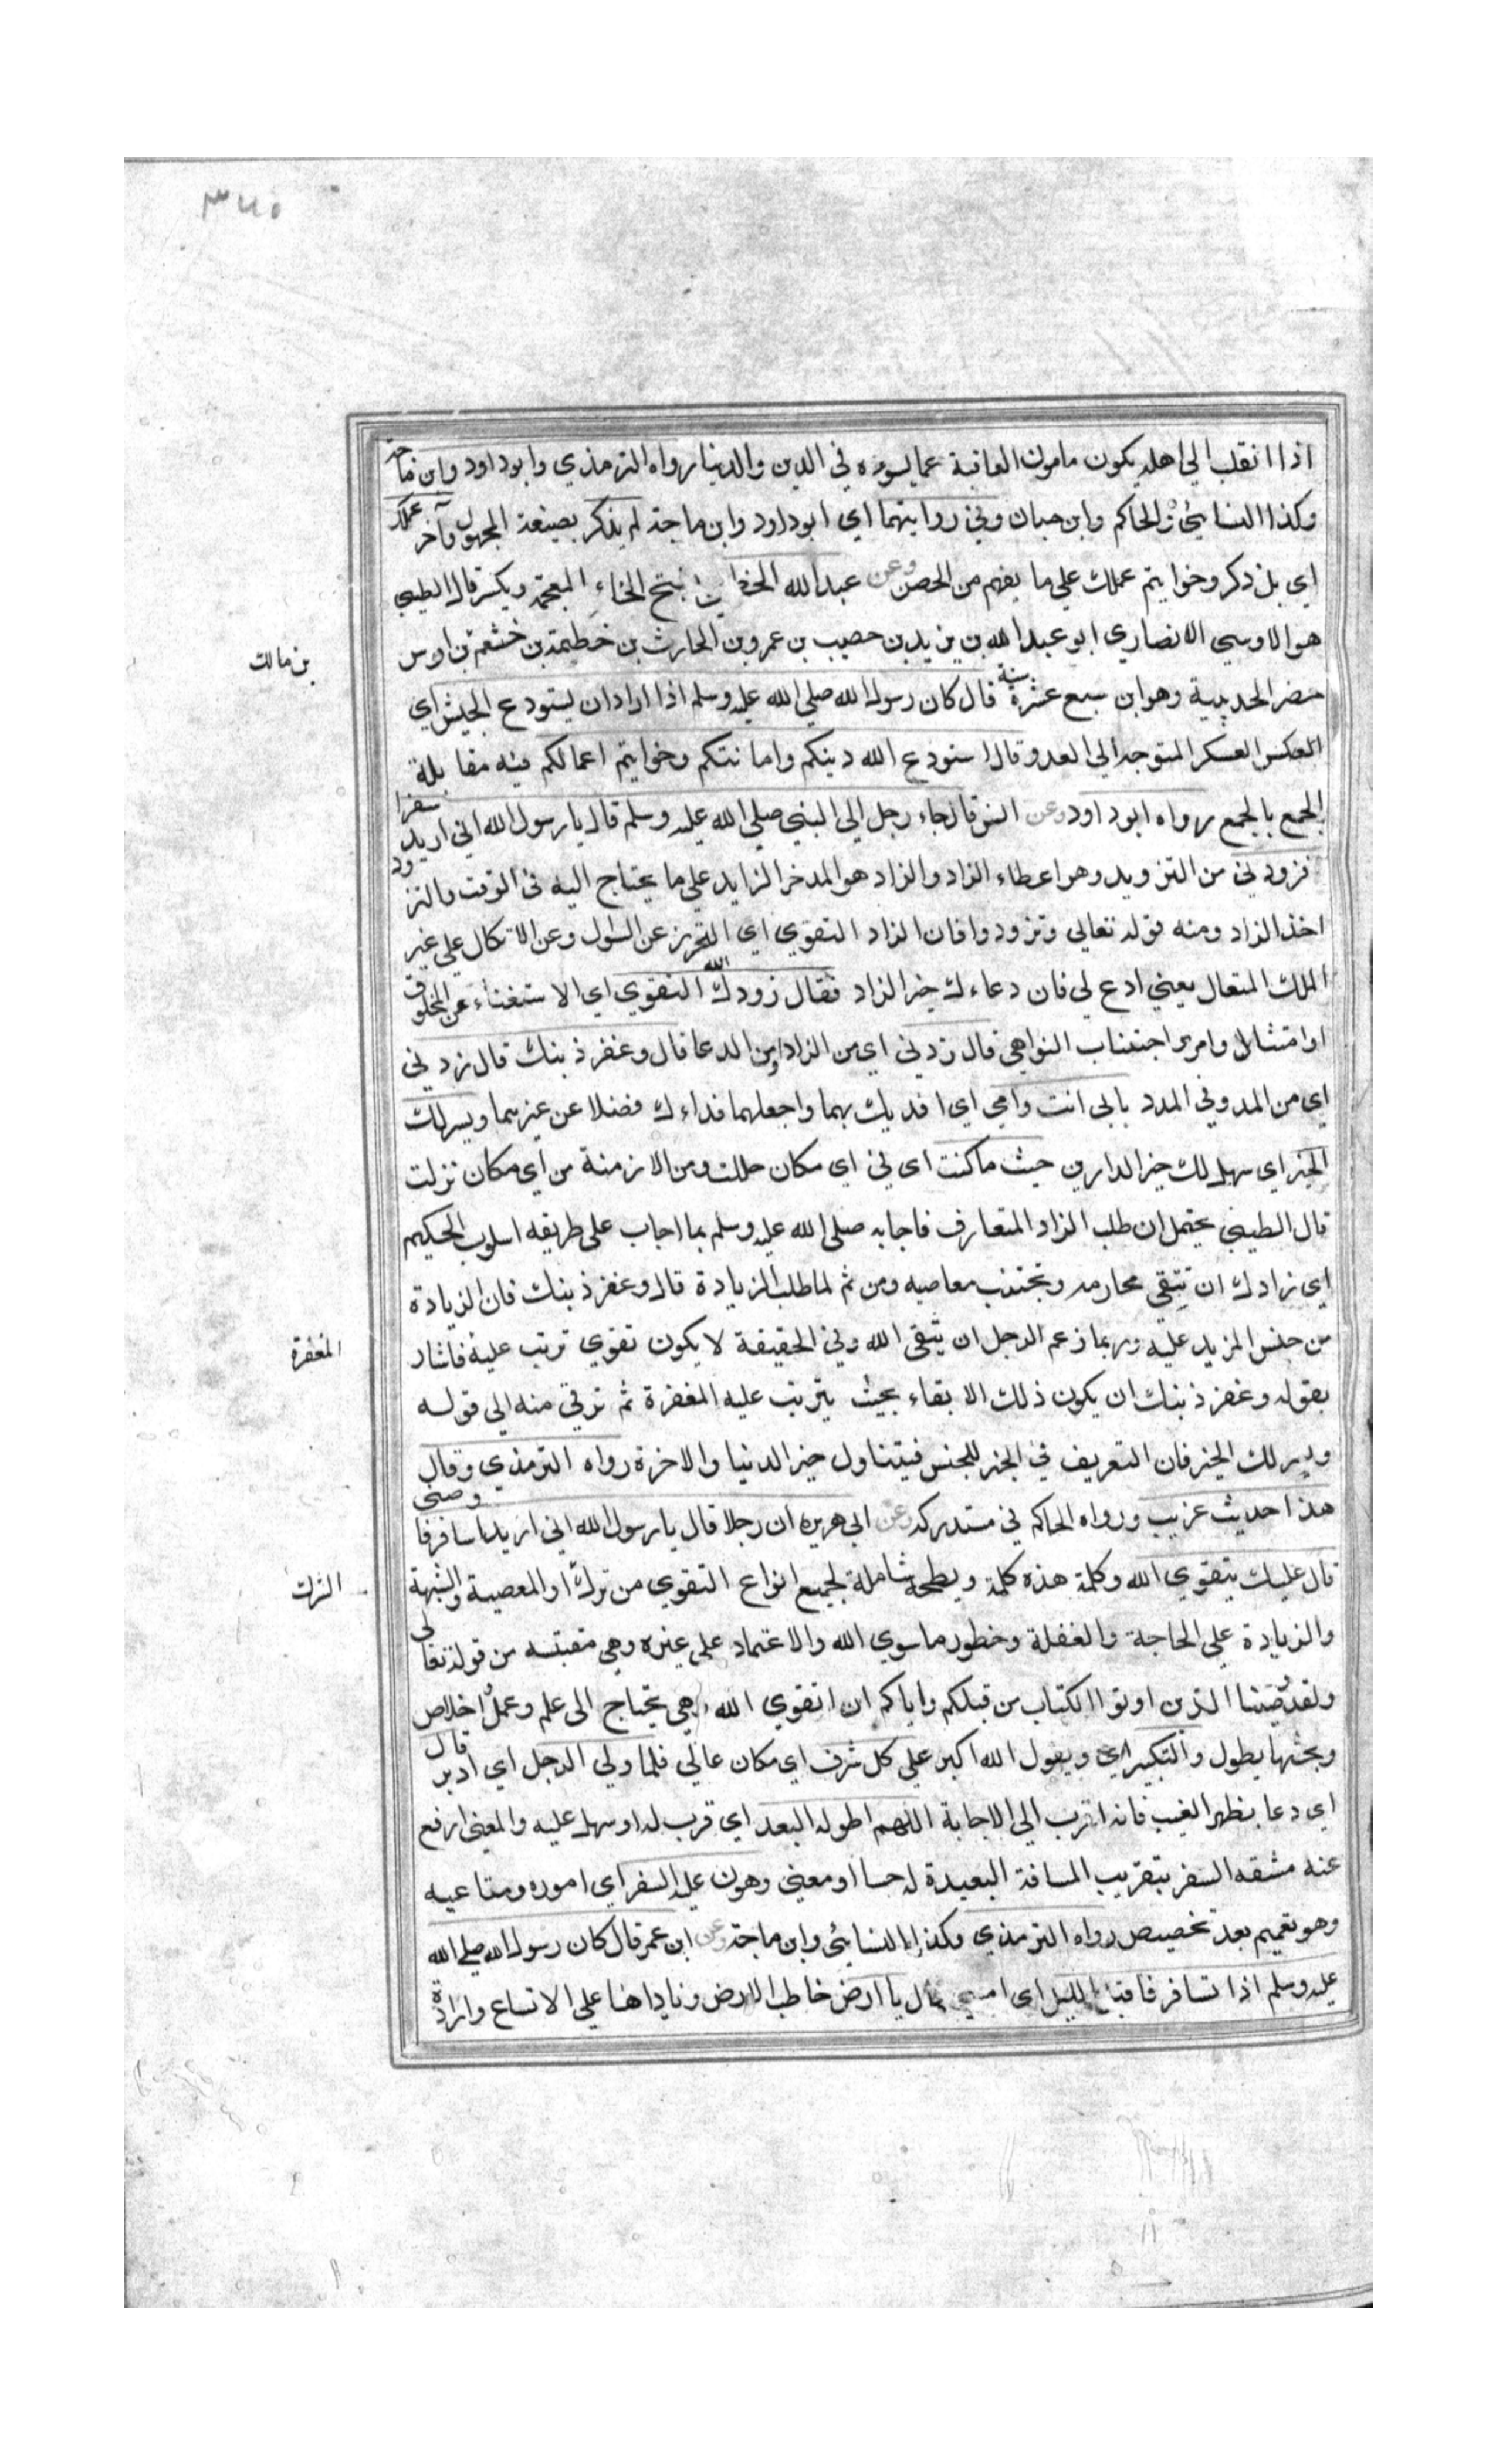 ٣٤٥
اذا انقلب الي اهله يكون مامون العاقبة عما يسوءه في الدين والدنيا رواه الترمذي وابو داود وابن ماجه
وكذا النسائي والحاكم وابن حبان وفي روايتهما اي ابو داود وابن ماجة لم يذكر بصيغة المجهول وآخر عملك
اي بل ذكر وخواتيم عملك علي ما يفهم من الحصن وعن عبد الله الخطمي بفتح الخاء المعجمة ويكسر قال الطيبي
هو الاوسي الانصاري ابو عبد الله بن يزيد بن حصيب بن عمرو بن الحارث بن خطيمة بن خشعم بن اوس
بن مالك
حضر الحديبية وهو ابن سبع عشرة سنة قال كان رسول الله صلي الله عليه وسلم اذا اراد ان يستودع الجيش اي
العكس العسكر المتوجه الي العدو قال استودع الله دينكم وامانتكم وخواتيم اعمالكم فيه مقابلة
الجمع بالجمع رواه ابو داود وعن انس قال جاء رجل الي النبي صلي الله عليه وسلم قال يا رسول الله اني اريد سفرا
فزودني من التزويد وهو اعطاء الزاد والزاد هو المدخر الزايد علي ما يحتاج اليه في الوقت والتزود
اخذ الزاد ومنه قوله تعالي وتزودوا فان الزاد التقوي اي التحرز عن السؤل وعن الاتكال علي غير
الملك المتعال يعني ادع لي فان دعاءك خير الزاد فقال زودك الله التقوي اي الاستغناء عن المخلوق
او امتثال وامر اجتناب النواهي قال زدني اي من الزاد او من الدعا قال وغفر ذنبك قال زدني
اي من المد وفي المدد بابي انت وامي اي افديك بهما واجعلهما فداءك فضلا عن غيرهما ويسر لك
الخير اي سهل لك خير الدارين حيث ما كنت اي في اي مكان حللت ومن الازمنة من اي مكان نزلت
قال الطيبي يحتمل ان طلب الزاد المتعارف فاجابه صلي الله عليه وسلم بما اجاب علي طريقه اسلوب الحكيم
اي زادك ان تتقي محارمه وتجتنب معاصيه ومن ثم لما طلب الزيادة قال وغفر ذنبك فان الزيادة
من جنس المزيد عليه وربما زعم الرجل ان يتقي الله وفي الحقيقة لا يكون تقوي ترتب عليه فاشار
المغفرة
بقوله وغفر ذنبك ان يكون ذلك الابقاء بحيث يترتب عليه المغفرة ثم ترقي منه الي قوله
ويسر لك الخير فان التعريف في الخير للجنس فيتناول خير الدنيا والاخرة رواه الترمذي وقال
هذا حديث غريب ورواه الحاكم في مستدركه وعن ابي هريره ان رجلا قال يا رسول الله اني اريد اسافر فاوصني
قال عليك بتقوي الله وكلمة هذه كلمة شاملة لجميع انواع التقوي من ترك او المعصية والشبهة
الشرك
والزيادة علي الحاجة والغفلة وخطور ما سوي الله والاعتماد علي غيره وهي مقتبسه من قوله تعالي
ولقد وصينا الذين اوتوا الكتاب من قبلكم واياكم ان اتقوي الله وهي يحتاج الي علم وعمل اخلاص
وبحثها يطول والتكبير اي ويقول الله اكبر علي كل شرف اي مكان عالي فلما ولي الرجل اي ادبر قال
اي دعا بظهر الغيب فانه اقرب الي الاجابة اللهم اطو له البعد اي قرب له او سهل عليه والمعني ارفع
عنه مشقه السفر بتقريب المسافة البعيدة له حسا او معني وهون عليه السفر اي اموره ومتاعبه
وهو تعميم بعد تخصيص رواه الترمذي وكذا النسائي وابن ماجة وعن ابن عمر قال كان رسول الله صلي الله
عليه وسلم اذا تسافر فاقبل الليل اي امسي قال يا ارض خاطب الارض وناداها علي الاتساع وارادة